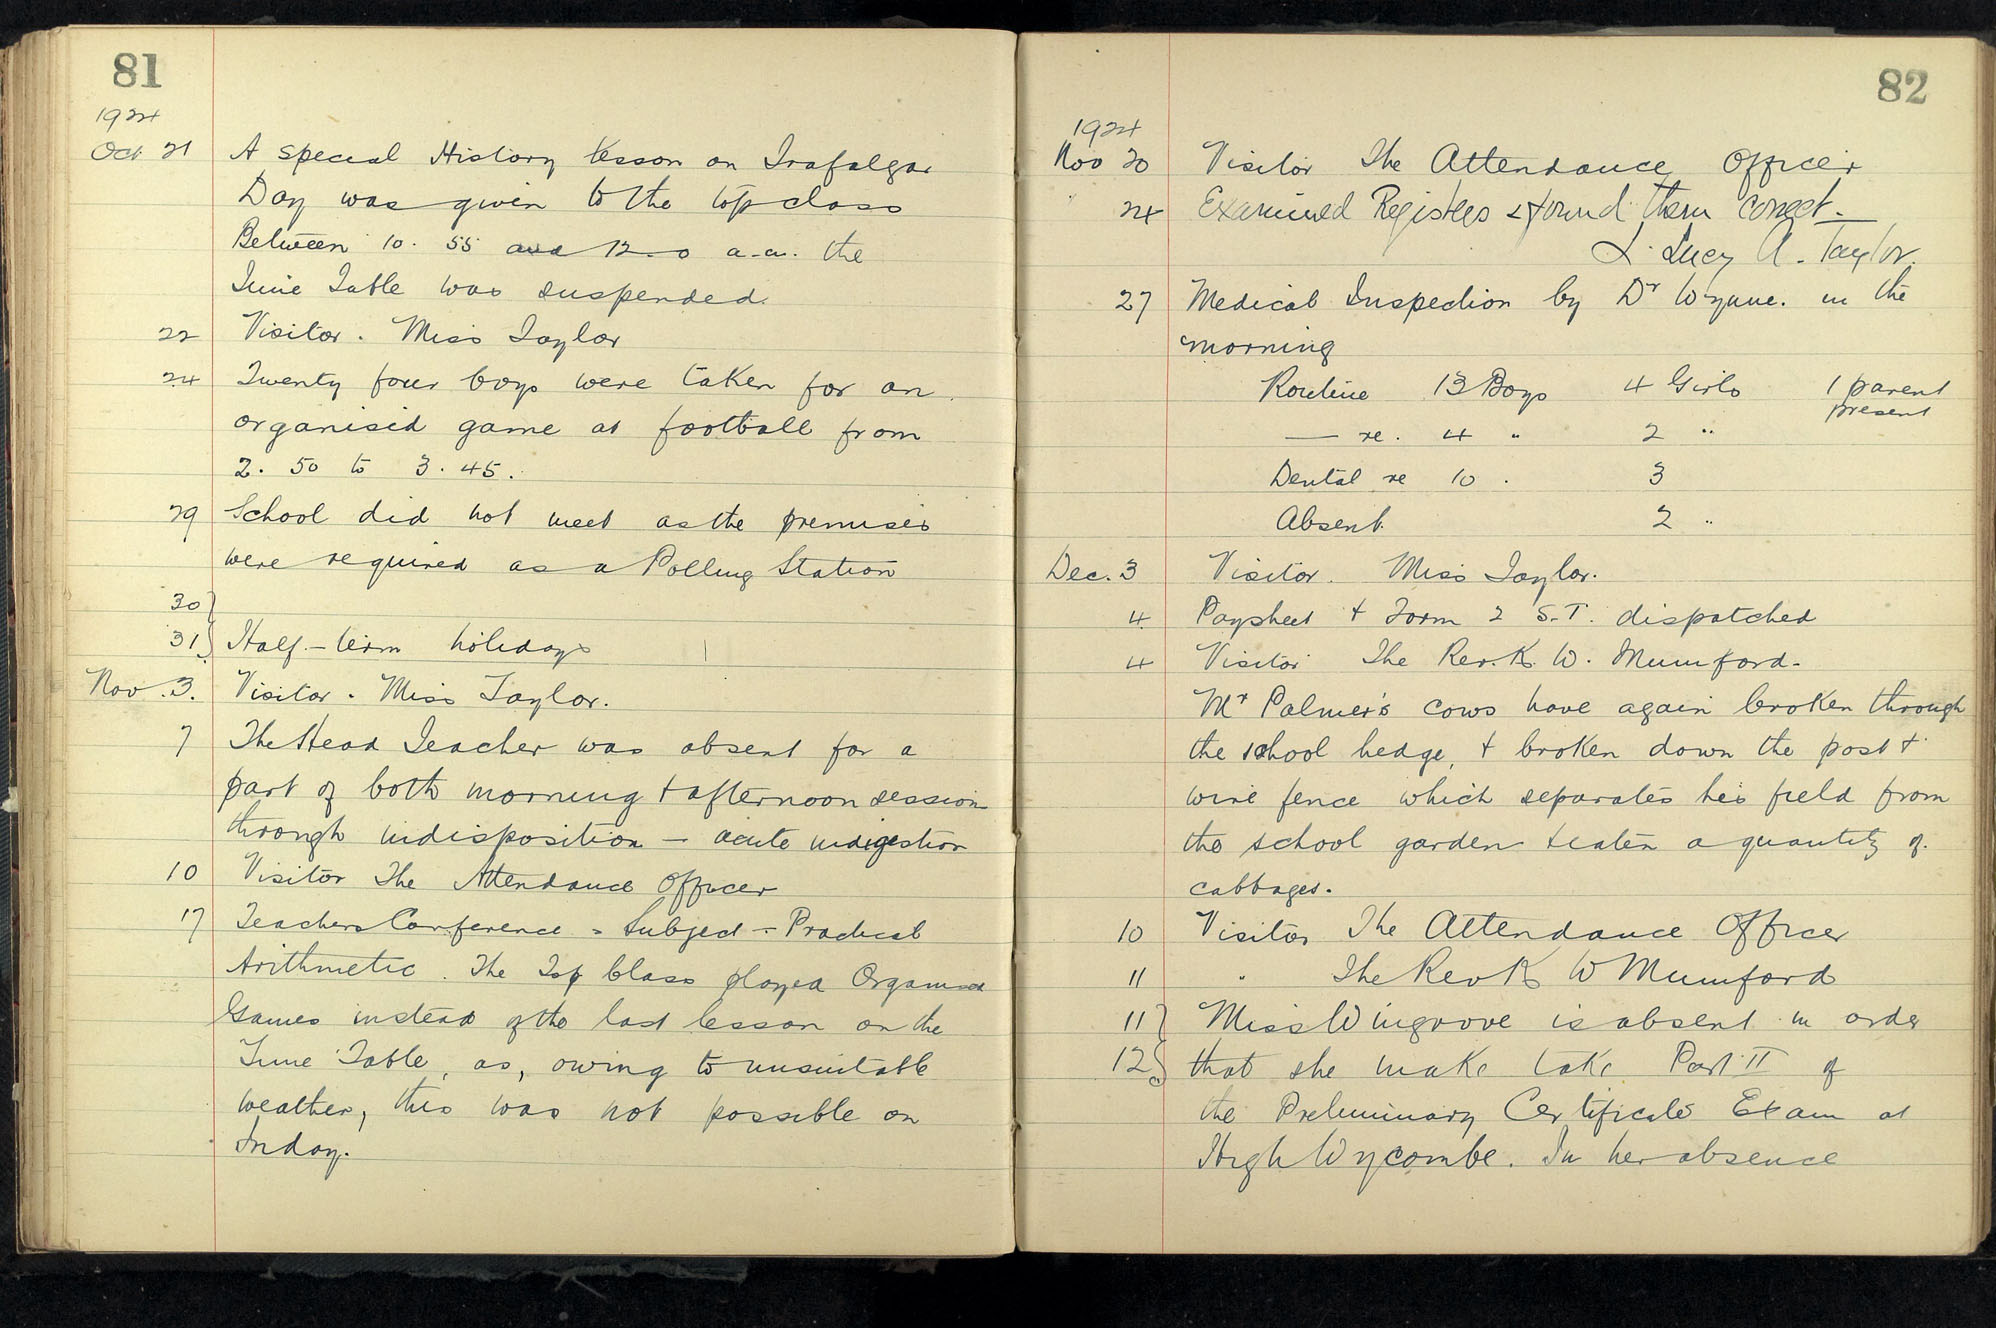 81
1924
Oct 21 A special History lesson on Trafalgar
Day was given to the top class
Between 10.55 and 12-0 a.m. the
Time Table was suspended.
22 Visitor. Miss Taylor
24 Twenty four boys were taken for an
organised game at football from
2.50 to 3.45.
29 School did not meet as the premises
were required as a Polling Station
30}
31} Half-term holidays
Nov. 3. Visitor. Miss Taylor.
7 The Head Teacher was absent for a
part of both morning + afternoon session
through indisposition — acute indigestion
10 Visitor The Attendance Officer
17 Teachers Conference - Subject - Practical
Arithmetic. The Top Class played Organised
Games instead of the last lesson on the
Time Table, as, owing to unsuitable
weather, this was not possible on
Friday.
82
1924
Nov 20 Visitor The Attendance Officer
24 Examined Registers & found them correct.
Lucy A. Taylor.
27 Medical Inspection by Dr Wynne. in the
morning
Routine 13 Boys 4 Girls 1 parent
present
— re. 4 " 2 "
Dental re 10 . 3
Absent. 2 "
Dec. 3 Visitor. Miss Taylor.
4. Paysheet + Form 2 S.T. dispatched
4 Visitor The Rev. K. W. Mumford.
Mr Palmer's cows have again broken through
the school hedge, + broken down the post +
wire fence which separates his field from
the school garden + eaten a quantity of
cabbages.
10 Visitor The Attendance Officer
11 " The Rev K W Mumford
11} Miss Wingrove is absent in order
12} that she make take Part II of
the Preliminary Certificate Exam at
High Wycombe. In her absence